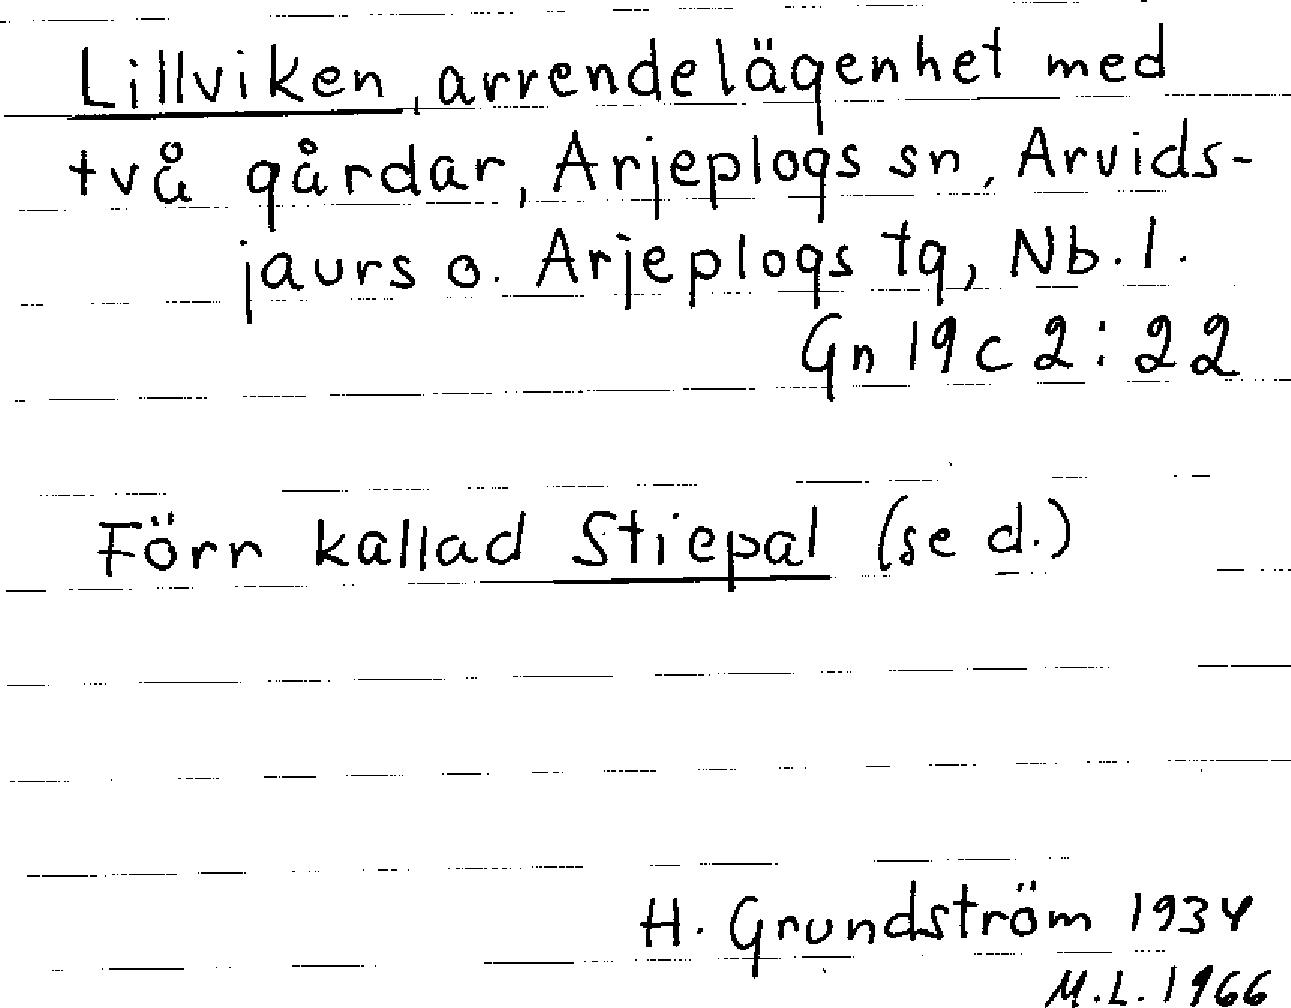 Lillviken, arrendelägenhet med
två gårdar, Arjeplogs sn, Arvids-
jaurs o. Arjeplogs tg, Nb. l.
Gn 19 c 2 : 22
Förr kallad Stiepal (se d.)
H. Grundström 1934
M.L. 1966